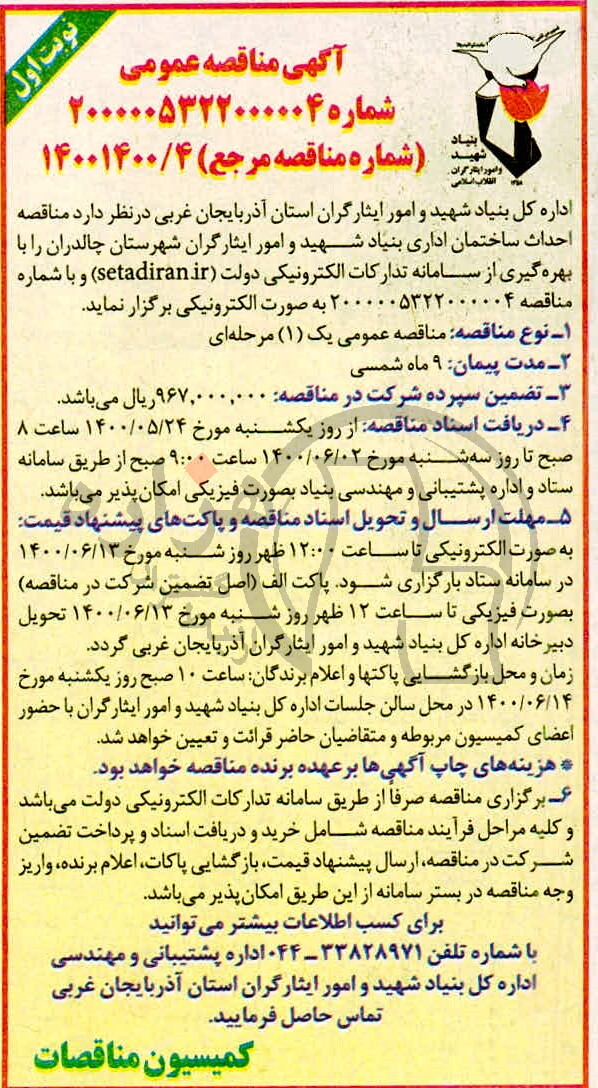 نوبت اول
آگهی مناقصه عمومی
شماره ۲۰۰۰۰۰۵۳۲۲۰۰۰۰۰۴
(شماره مناقصه مرجع) ۱۴۰۰۱۴۰۰/۴
بنیاد
شهید
و امور ایثارگران
انقلاب اسلامی
اداره کل بنیاد شهید و امور ایثارگران استان آذربایجان غربی درنظر دارد مناقصه
احداث ساختمان اداری بنیاد شهید و امور ایثارگران شهرستان چالدران را با
بهره‌گیری از سامانه تدارکات الکترونیکی دولت (setadiran.ir) و با شماره
مناقصه ۲۰۰۰۰۰۵۳۲۲۰۰۰۰۰۴ به صورت الکترونیکی برگزار نماید.
۱ـ نوع مناقصه: مناقصه عمومی یک (۱) مرحله‌ای
۲ـ مدت پیمان: ۹ ماه شمسی
۳ـ تضمین سپرده شرکت در مناقصه: ۹۶۷,۰۰۰,۰۰۰ریال می‌باشد.
۴ـ دریافت اسناد مناقصه: از روز یکشنبه مورخ ۱۴۰۰/۰۵/۲۴ ساعت ۸
صبح تا روز سه‌شنبه مورخ ۱۴۰۰/۰۶/۰۲ ساعت ۹:۰۰ صبح از طریق سامانه
ستاد و اداره پشتیبانی و مهندسی بنیاد بصورت فیزیکی امکان‌پذیر می‌باشد.
۵ـ مهلت ارسال و تحویل اسناد مناقصه و پاکت‌های پیشنهاد قیمت:
به صورت الکترونیکی تا ساعت ۱۲:۰۰ ظهر روز شنبه مورخ ۱۴۰۰/۰۶/۱۳
در سامانه ستاد بارگزاری شود. پاکت الف (اصل تضمین شرکت در مناقصه)
بصورت فیزیکی تا ساعت ۱۲ ظهر روز شنبه مورخ ۱۴۰۰/۰۶/۱۳ تحویل
دبیرخانه اداره کل بنیاد شهید و امور ایثارگران آذربایجان غربی گردد.
زمان و محل بازگشایی پاکتها و اعلام برندگان: ساعت ۱۰ صبح روز یکشنبه مورخ
۱۴۰۰/۰۶/۱۴ در محل سالن جلسات اداره کل بنیاد شهید و امور ایثارگران با حضور
اعضای کمیسیون مربوطه و متقاضیان حاضر قرائت و تعیین خواهد شد.
* هزینه‌های چاپ آگهی‌ها برعهده برنده مناقصه خواهد بود.
۶ـ برگزاری مناقصه صرفاً از طریق سامانه تدارکات الکترونیکی دولت می‌باشد
و کلیه مراحل فرآیند مناقصه شامل خرید و دریافت اسناد و پرداخت تضمین
شرکت در مناقصه، ارسال پیشنهاد قیمت، بازگشایی پاکات، اعلام برنده، واریز
وجه مناقصه در بستر سامانه از این طریق امکان‌پذیر می‌باشد.
برای کسب اطلاعات بیشتر می‌توانید
با شماره تلفن ۳۳۸۲۸۹۷۱ ـ ۰۴۴ اداره پشتیبانی و مهندسی
اداره کل بنیاد شهید و امور ایثارگران استان آذربایجان غربی
تماس حاصل فرمایید.
کمیسیون مناقصات